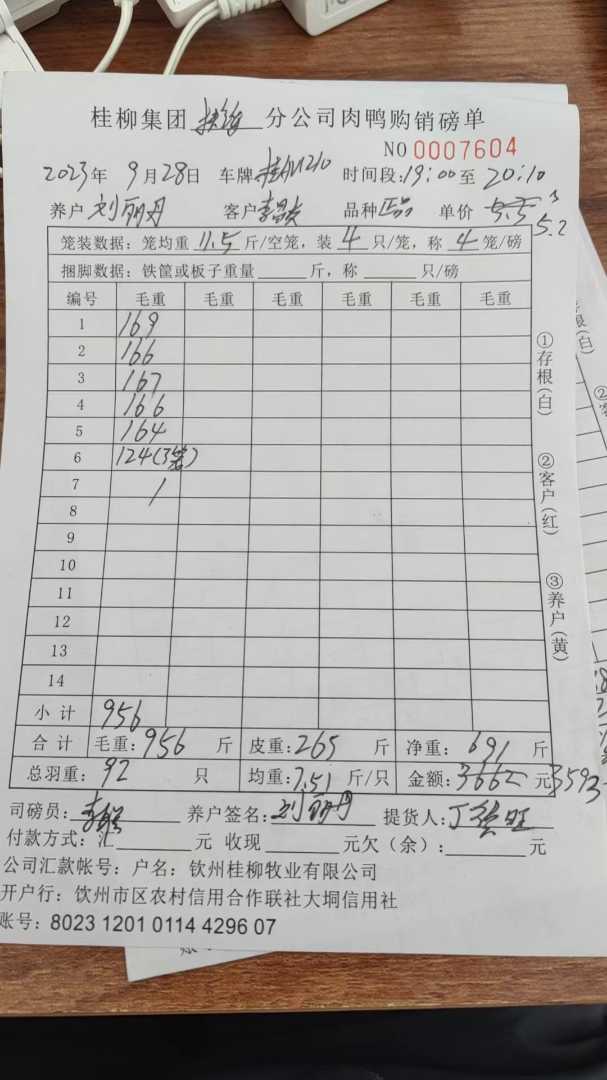 桂柳集团 分公司肉鸭购销磅单
NO 0007604
2023年 9月28日 车牌 时间段:19:00至 20:10
养户 刘丽丹 客户 品种 正品 单价 5.2
笼装数据:笼均重 11.5 斤/空笼,装 4 只/笼,称 4 笼/磅
捆脚数据:铁筐或板子重量 斤,称 只/磅
编号 毛重 毛重 毛重 毛重 毛重 毛重
1 169
2 166
3 167
4 166
5 164
6 124(3笼)
7 /
8
9
10
11
12
13
14
小计 956
合计 毛重:956 斤 皮重:265 斤 净重:691 斤
总羽重:92 只 均重:7.51 斤/只 金额: 元 3593
司磅员: 养户签名:刘丽丹 提货人:
付款方式:汇 元 收现 元欠(余): 元
公司汇款帐号:户名:钦州桂柳牧业有限公司
开户行:钦州市区农村信用合作联社大垌信用社
账号:8023 1201 0114 4296 07
①存根(白)
②客户(红)
③养户(黄)